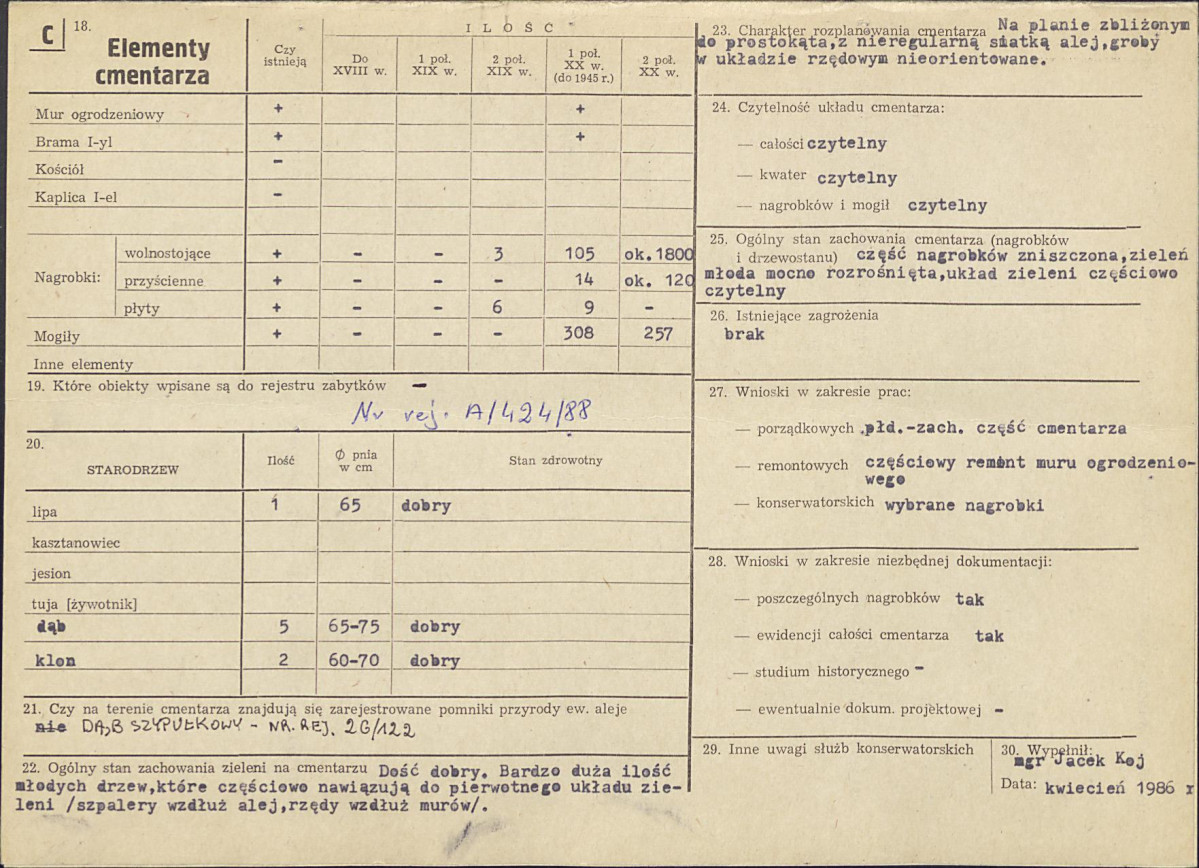 C 18. Elementy cmentarza
Czy istnieją
I L O Ś Ć
Do XVIII w.
1 poł. XIX w.
2 poł. XIX w.
1 poł. XX w. (do 1945 r.)
2 poł. XX w.
Mur ogrodzeniowy + +
Brama I-yl + +
Kościół -
Kaplica I-el -
Nagrobki:
wolnostojące + - - 3 105 ok.1800
przyścienne + - - - 14 ok. 120
płyty + - - 6 9 -
Mogiły + - - - 308 257
Inne elementy
19. Które obiekty wpisane są do rejestru zabytków —
Nr rej. A/424/88
20.
STARODRZEW
Ilość
∅ pnia w cm
Stan zdrowotny
lipa 1 65 dobry
kasztanowiec
jesion
tuja [żywotnik]
dąb 5 65-75 dobry
klon 2 60-70 dobry
21. Czy na terenie cmentarza znajdują się zarejestrowane pomniki przyrody ew. aleje
nie DĄB SZYPUŁKOWY - NR. REJ. 2G/122
22. Ogólny stan zachowania zieleni na cmentarzu Dość dobry. Bardzo duża ilość
młodych drzew,które częściowo nawiązują do pierwotnego układu zie-
leni /szpalery wzdłuż alej,rzędy wzdłuż murów/.
23. Charakter rozplanowania cmentarza Na planie zbliżonym
do prostokąta,z nieregularną siatką alej,groby
w układzie rzędowym nieorientowane.
24. Czytelność układu cmentarza:
— całości czytelny
— kwater czytelny
— nagrobków i mogił czytelny
25. Ogólny stan zachowania cmentarza (nagrobków
i drzewostanu) część nagrobków zniszczona,zieleń
młoda mocno rozrośnięta,układ zieleni częściowo
czytelny
26. Istniejące zagrożenia
brak
27. Wnioski w zakresie prac:
— porządkowych płd.-zach. część cmentarza
— remontowych częściowy remont muru ogrodzenio-
wego
— konserwatorskich wybrane nagrobki
28. Wnioski w zakresie niezbędnej dokumentacji:
— poszczególnych nagrobków tak
— ewidencji całości cmentarza tak
— studium historycznego -
— ewentualnie dokum. projektowej -
29. Inne uwagi służb konserwatorskich
30. Wypełnił:
mgr Jacek Koj
Data: kwiecień 1986 r